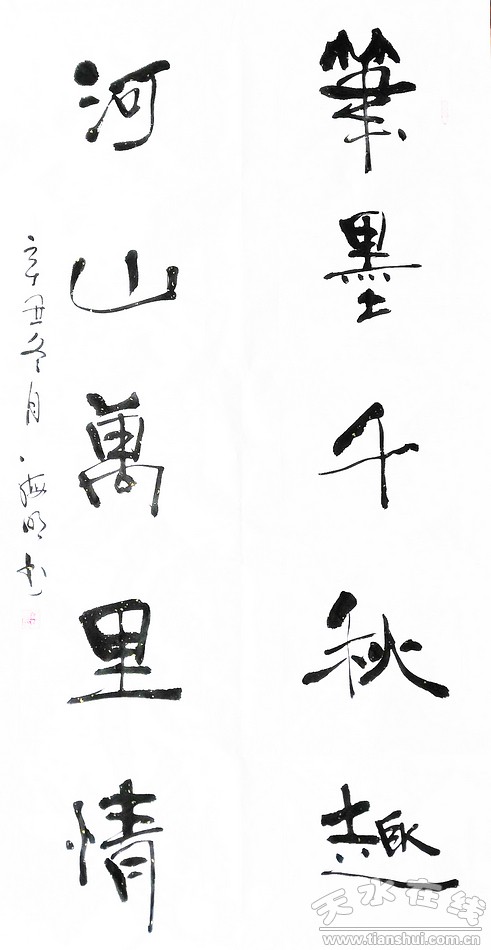 筆墨千秋趣
河山萬里情
辛丑冬月 海明书
天水在线
www.tianshui.com.cn